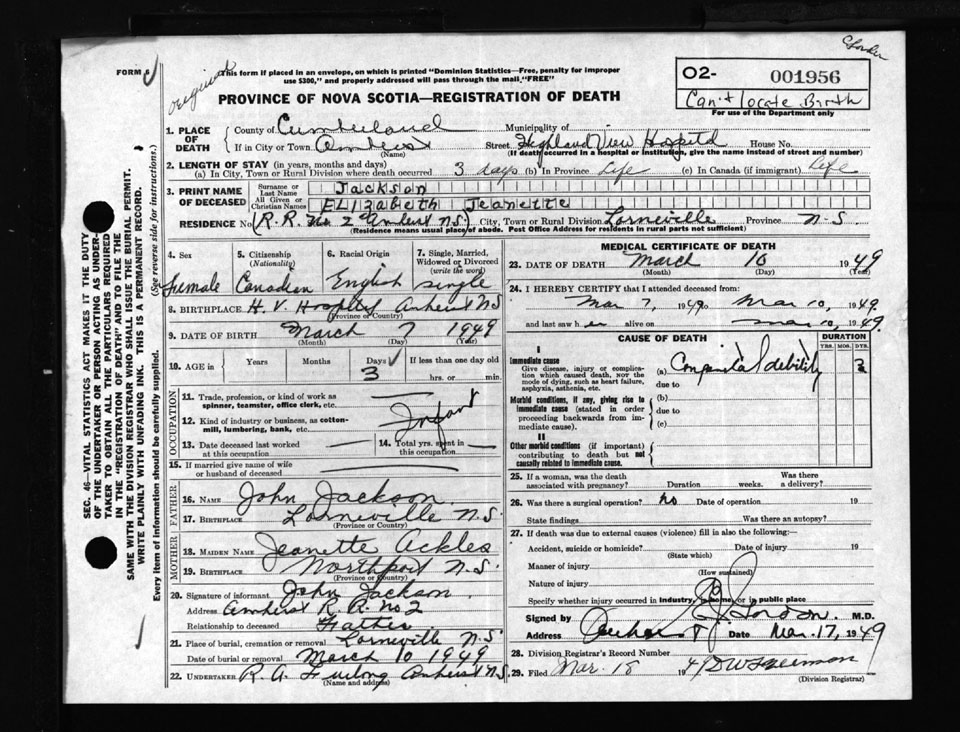 FORM 6
original
This form if placed in an envelope, on which is printed "Dominion Statistics—Free, penalty for improper
use $300," and properly addressed will pass through the mail "FREE"
O2- 001956
Can't locate Birth
For use of the Department only
PROVINCE OF NOVA SCOTIA—REGISTRATION OF DEATH
1. PLACE OF DEATH
County of Cumberland Municipality of
If in City or Town Amherst Street Highland View Hospital House No.
(Name) (If death occurred in a hospital or institution, give the name instead of street and number)
2. LENGTH OF STAY (in years, months and days)
(a) In City, Town or Rural Division where death occurred 3 days (b) In Province Life (c) In Canada (if immigrant) Life
3. PRINT NAME OF DECEASED
Surname or Last Name Jackson
All Given or Christian Names ELIZabeth Jeanette
RESIDENCE No. (R.R. No. 2 Amherst N.S.) City, Town or Rural Division Lorneville Province N.S.
(Residence means usual place of abode. Post Office Address for residents in rural parts not sufficient)
4. Sex
female
5. Citizenship (Nationality)
Canadian
6. Racial Origin
English
7. Single, Married, Widowed or Divorced (write the word)
single
8. BIRTHPLACE H. V. Hospital Amherst NS
(Province or Country)
9. DATE OF BIRTH March 7 1949
(Month) (Day) (Year)
10. AGE in Years Months Days If less than one day old
3 hrs. or min.
OCCUPATION
11. Trade, profession, or kind of work as
spinner, teamster, office clerk, etc.
12. Kind of industry or business, as cotton-
mill, lumbering, bank, etc. Infant
13. Date deceased last worked
at this occupation
14. Total yrs. spent in
this occupation
15. If married give name of wife
or husband of deceased
FATHER
16. NAME John Jackson
17. BIRTHPLACE Lorneville N.S.
(Province or Country)
MOTHER
18. MAIDEN NAME Jeanette Ackles
19. BIRTHPLACE Northport N.S.
(Province or Country)
20. Signature of informant John Jackson
Address Amherst R.R. No. 2
Relationship to deceased Father
21. Place of burial, cremation or removal Lorneville N.S.
Date of burial or removal March 10 1949
22. UNDERTAKER R. A. Furlong Amherst N.S.
(Name and address)
MEDICAL CERTIFICATE OF DEATH
23. DATE OF DEATH March 10 1949
(Month) (Day) (Year)
24. I HEREBY CERTIFY that I attended deceased from:
Mar 7, 1949 to Mar 10, 1949
and last saw h er alive on Mar 10, 1949
CAUSE OF DEATH
DURATION
YRS. MOS. DYS.
I
Immediate cause
Give disease, injury or complica-
tion which caused death, NOT the
mode of dying, such as heart failure,
asphyxia, asthenia, etc.
(a) Congenital debility 3
due to
Morbid conditions, if any, giving rise to
immediate cause (stated in order
proceeding backwards from im-
mediate cause).
(b)
due to
(c)
II
Other morbid conditions (if important)
contributing to death but not
causally related to immediate cause.
25. If a woman, was the death
associated with pregnancy? Duration weeks. Was there a delivery?
26. Was there a surgical operation? No Date of operation 19
State findings Was there an autopsy?
27. If death was due to external causes (violence) fill in also the following:
Accident, suicide or homicide? Date of injury 19
(State which)
Manner of injury
(How sustained)
Nature of injury
Specify whether injury occurred in industry, in home, or in public place
Signed by M.D.
Address Amherst Date Mar. 17, 1949
28. Division Registrar's Record Number
29. Filed Mar. 18 1949 D W Freeman
(Division Registrar)
SEC. 46—VITAL STATISTICS ACT MAKES IT THE DUTY
OF THE UNDERTAKER OR PERSON ACTING AS UNDER-
TAKER TO OBTAIN ALL THE PARTICULARS REQUIRED
IN THE "REGISTRATION OF DEATH" AND TO FILE THE
SAME WITH THE DIVISION REGISTRAR WHO SHALL ISSUE THE BURIAL PERMIT.
WRITE PLAINLY WITH UNFADING INK. THIS IS A PERMANENT RECORD.
Every item of information should be carefully supplied. (See reverse side for instructions.)